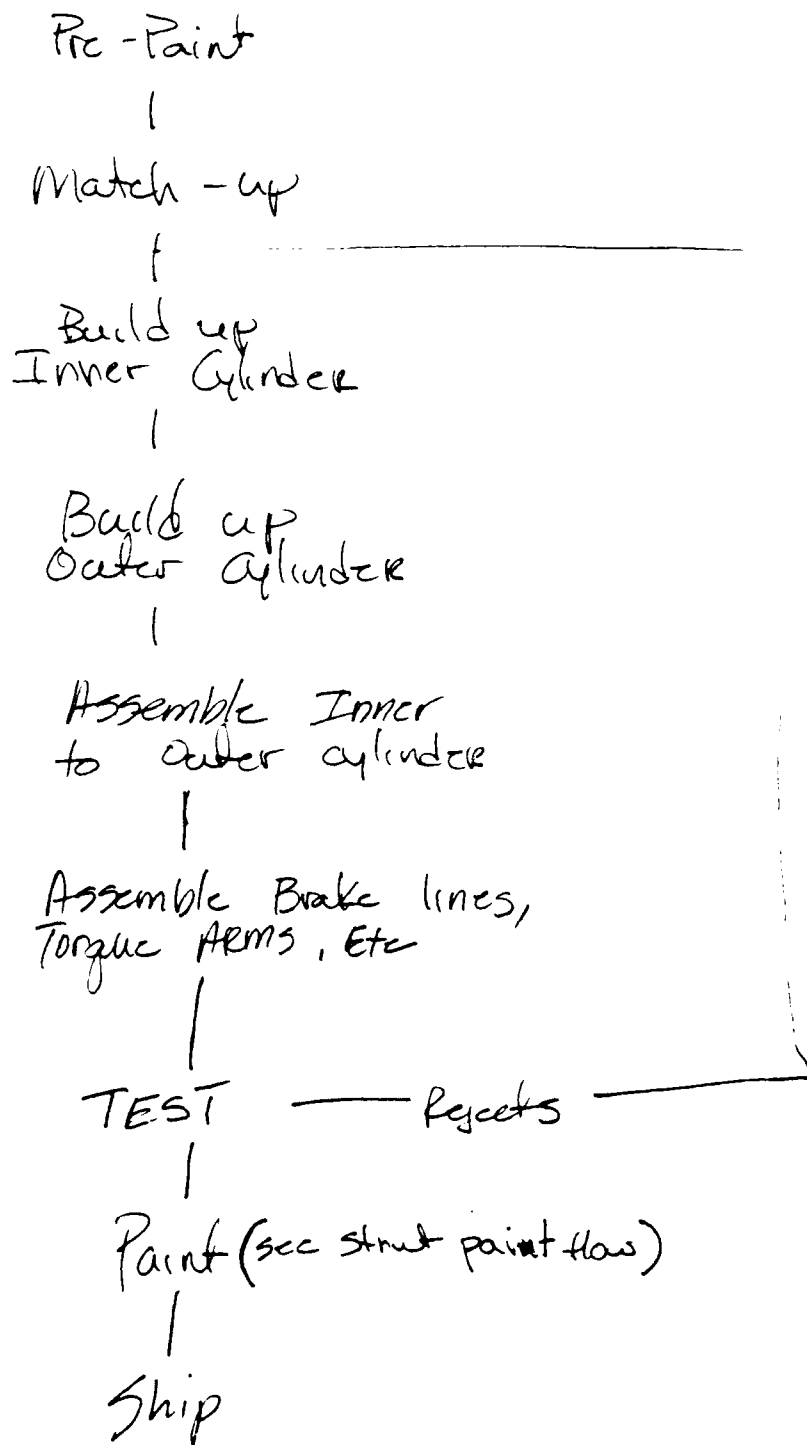 Pre-Paint
Match-up
Build up
Inner Cylinder
Build up
Outer Cylinder
Assemble Inner
to Outer cylinder
Assemble Brake lines,
Torque ARMS, Etc
TEST Rejects
Paint (see strut paint flow)
Ship